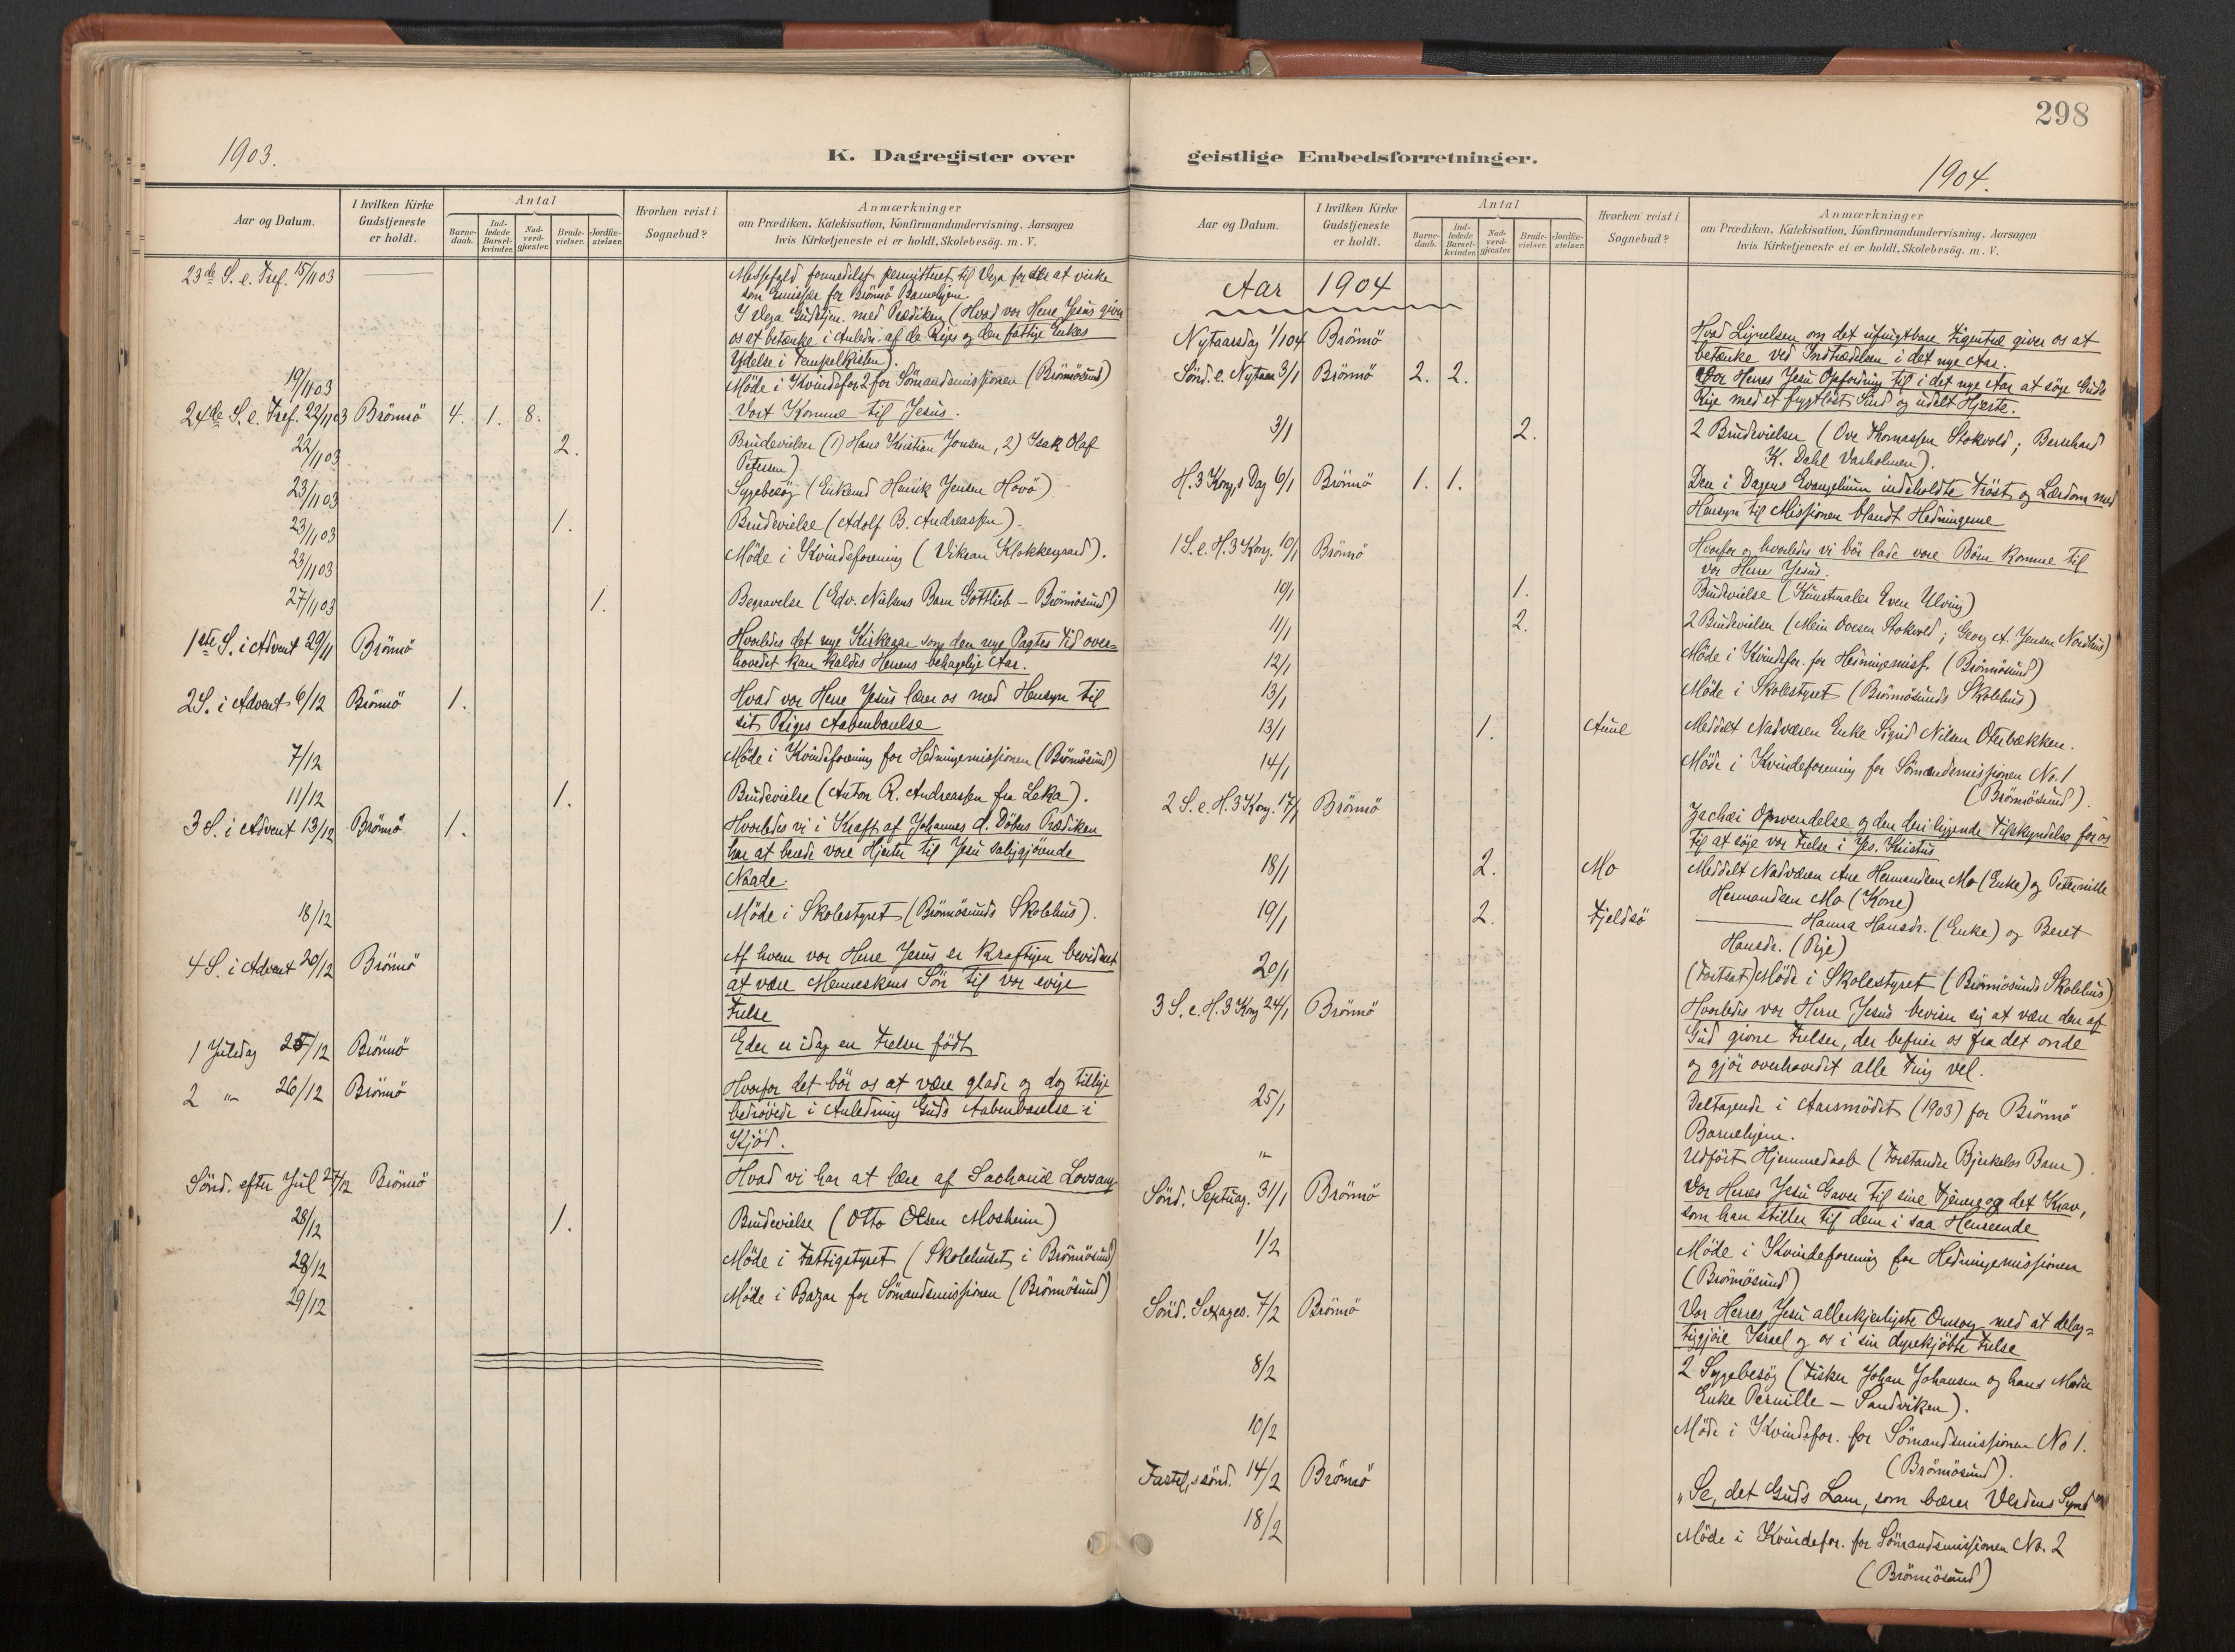 298
1903.
K. Dagregister over
Aar og Datum.
I hvilken Kirke Gudstjeneste er holdt.
Antal
Barne-daab.
Ind-ledede Barsel-kvinder.
Nad-verd-gjester.
Brude-vielser.
Jordfæ-stelser.
Hvorhen reist i Sognebud?
Anmærkninger
om Prædiken, Katekisation, Konfirmandundervisning, Aarsagen
hvis Kirketjeneste ei er holdt, Skolebesög. m. V.
23de S. e. Tref. 15/11 03
Messefald formedelst permitteret til Vega for der at virke
som Emissær for Brönnö Barnehjem.
I Vega Gudstjen. med Prædiken (Hvad vor Herre Jesus giver
os at betænke i Anledn. af de Riges og den fattige Enkes
Ydelse i Tempelkisten).
19/11 03 Möde i Kvindefor. 2 for Sömandsmissionen (Brönnösund)
24de S. e. Tref. 22/11 03 Brönnö 4. 1. 8. Vort Komme til Jesus.
22/11 03 2. Brudevielser (1) Hans Kristian Jonsen, 2) Isak Olaf
Petersen)
23/11 03 Sygebesög (Enkemd Henrik Jensen Horö)
23/11 03 1. Brudevielse (Adolf B. Andreassen).
23/11 03 Möde i Kvindeforening (Vikran Klokkergaard).
27/11 03 1. Begravelse (Edv. Nielsens Barn Gottlieb – Brönnösund)
1ste S. i Advent 29/11 Brönnö Hvorledes det nye Kirkeaar som den nye Pagtes Tid over=
hovedet kan kaldes Herrens behagelige Aar.
2 S. i Advent 6/12 Brönnö 1. Hvad vor Herre Jesus lærer os med Hensyn til
sit Riges Aabenbarelse
7/12 Möde i Kvindeforening for Hedningemissionen (Brönnösund)
11/12 1. Brudevielse (Anton R. Andreassen fra Leka).
3 S. i Advent 13/12 Brönnö 1. Hvorledes vi i Kraft af Johannes d. Döbers Prædiken
har at berede vore Hjerter til Jesu saliggjörende
Naade.
18/12 Möde i Skolestyret (Brönnösunds Skolehus).
4 S. i Advent 20/12 Brönnö Af hvem vor Herre Jesus er kraftigen bevidnet
at være Menneskens Sön til vor evige
Frelse
1 Juledag 25/12 Brönnö Eder er idag en Frelser födt
2 " 26/12 Brönnö Hvorfor det bör os at være glade og dog tillige
bedrövede i Anledning Guds Aabenbarelse i
Kjöd.
Sönd. efter Jul 27/12 Brönnö Hvad vi har at lære af Sacharias Lovsang
28/12 1. Brudevielse (Otto Olsen Mosheim)
28/12 Möde i Fattigstyret (Skolehuset i Brönnösund)
29/12 Möde i Bazar for Sömandsmissionen (Brönnösund)
geistlige Embedsforretninger.
1904.
Aar og Datum.
I hvilken Kirke Gudstjeneste er holdt.
Antal
Barne-daab.
Ind-ledede Barsel-kvinder.
Nad-verd-gjester.
Brude-vielser.
Jordfæ-stelser.
Hvorhen reist i Sognebud?
Anmærkninger
om Prædiken, Katekisation, Konfirmandundervisning, Aarsagen
hvis Kirketjeneste ei er holdt, Skolebesög. m. V.
Aar 1904
Nytaarsdag 1/1 04 Brönnö Hvad Lignelsen om det ufrugtbare Figentræ giver os at
betænke ved Indtrædelsen i det nye Aar.
Sönd. e. Nytaar 3/1 Brönnö 2. 2. Vor Herres Jesu Opfordring til i det nye Aar at söge Guds
Rige med et frygtlöst Sind og udelt Hjerte.
3/1 2. 2 Brudevielser (Ove Thomassen Stokvold; Bernhard
K. Dahl Vasholmen).
H. 3 Kong.s Dag 6/1 Brönnö 1. 1. Den i Dagens Evangelium indeholdte Tröst og Lærdom med
Hensyn til Missionen blandt Hedningerne
1 S. e. H. 3 Kong. 10/1 Brönnö Hvorfor og hvorledes vi bör lade vore Börn komme til
vor Herre Jesus.
10/1 1. Brudevielse (Kunstmaler Even Ulving)
11/1 2. 2 Brudevielser (Mein Ovesen Stokvold; Georg A. Jensen Nordhus)
12/1 Möde i Kvindefor. for Hedningemiss. (Brönnösund)
13/1 Möde i Skolestyret (Brönnösunds Skolehus)
13/1 1. Aune Meddelt Nadveren Enke Sigrid Nilsen Oterbækken.
14/1 Möde i Kvindeforening for Sömandsmissionen No. 1
(Brönnösund).
2 S. e. H. 3 Kong. 17/1 Brönnö Zachæi Omvendelse og den deri liggende Tilskyndelse for os
til at söge vor Frelse i Jes. Kristus
18/1 2. Mo Meddelt Nadveren Ane Hermandsen Mo (Enke) og Peternille
Hermandsen Mo (Kone)
19/1 2. Fjeldsö Hanna Hansdr. (Enke) og Beret
Hansdr. (Pige)
20/1 (Fortsat) Möde i Skolestyret (Brönnösunds Skolehus)
3 S. e. H. 3 Kong 24/1 Brönnö Hvorledes vor Herre Jesus beviser sig at være den af
Gud givne Frelser, der befrier os fra det onde
og gjör overhovedet alle Ting vel.
25/1 Deltagende i Aarsmödet (1903) for Brönnö
Barnehjem.
" Udfört Hjemmedaab (Forstander Bjerkelos Barn).
Sönd. Septuag. 31/1 Brönnö Vor Herres Jesu Gaver til sine Tjenere og det Krav,
som han stiller til dem i saa Henseende
1/2 Möde i Kvindeforening for Hedningemissionen
(Brönnösund)
Sönd. Sexages. 7/2 Brönnö Vor Herres Jesu allerkjærligste Omsorg med at delag=
tiggjöre Israel og os i sin dyrekjöbte Frelse
8/2 2 Sygebesög (Fisker Johan Johansen og hans Moder
Enke Pernille – Sandviken).
10/2 Möde i Kvindefor. for Sömandsmissionen No 1.
(Brönnösund).
Fastel.ssönd. 14/2 Brönnö „Se, det Guds Lam, som bærer Verdens Synd"
18/2 Möde i Kvindefor. for Sömandsmissionen No. 2
(Brönnösund)